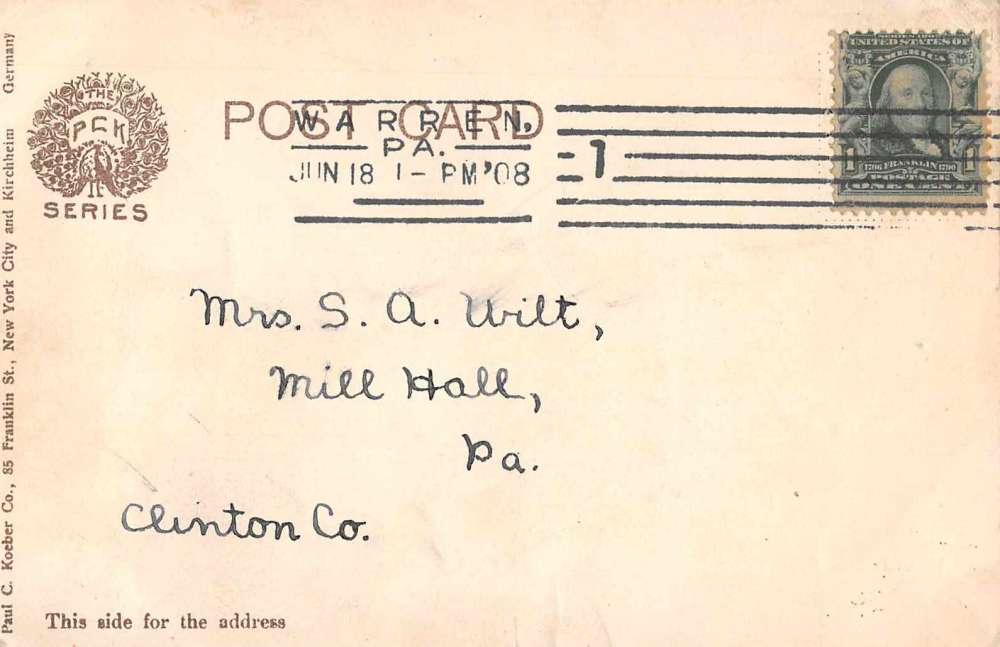 THE
PCK
SERIES
POST CARD
WARREN,
PA.
JUN 18 1 - PM '08
1
SERIES 1902
UNITED STATES OF
AMERICA
1706 FRANKLIN 1790
1 1
POSTAGE
ONE CENT
Mrs. S. A. Wilt,
Mill Hall,
Pa.
Clinton Co.
This side for the address
Paul C. Koeber Co., 85 Franklin St., New York City and Kirchheim Germany